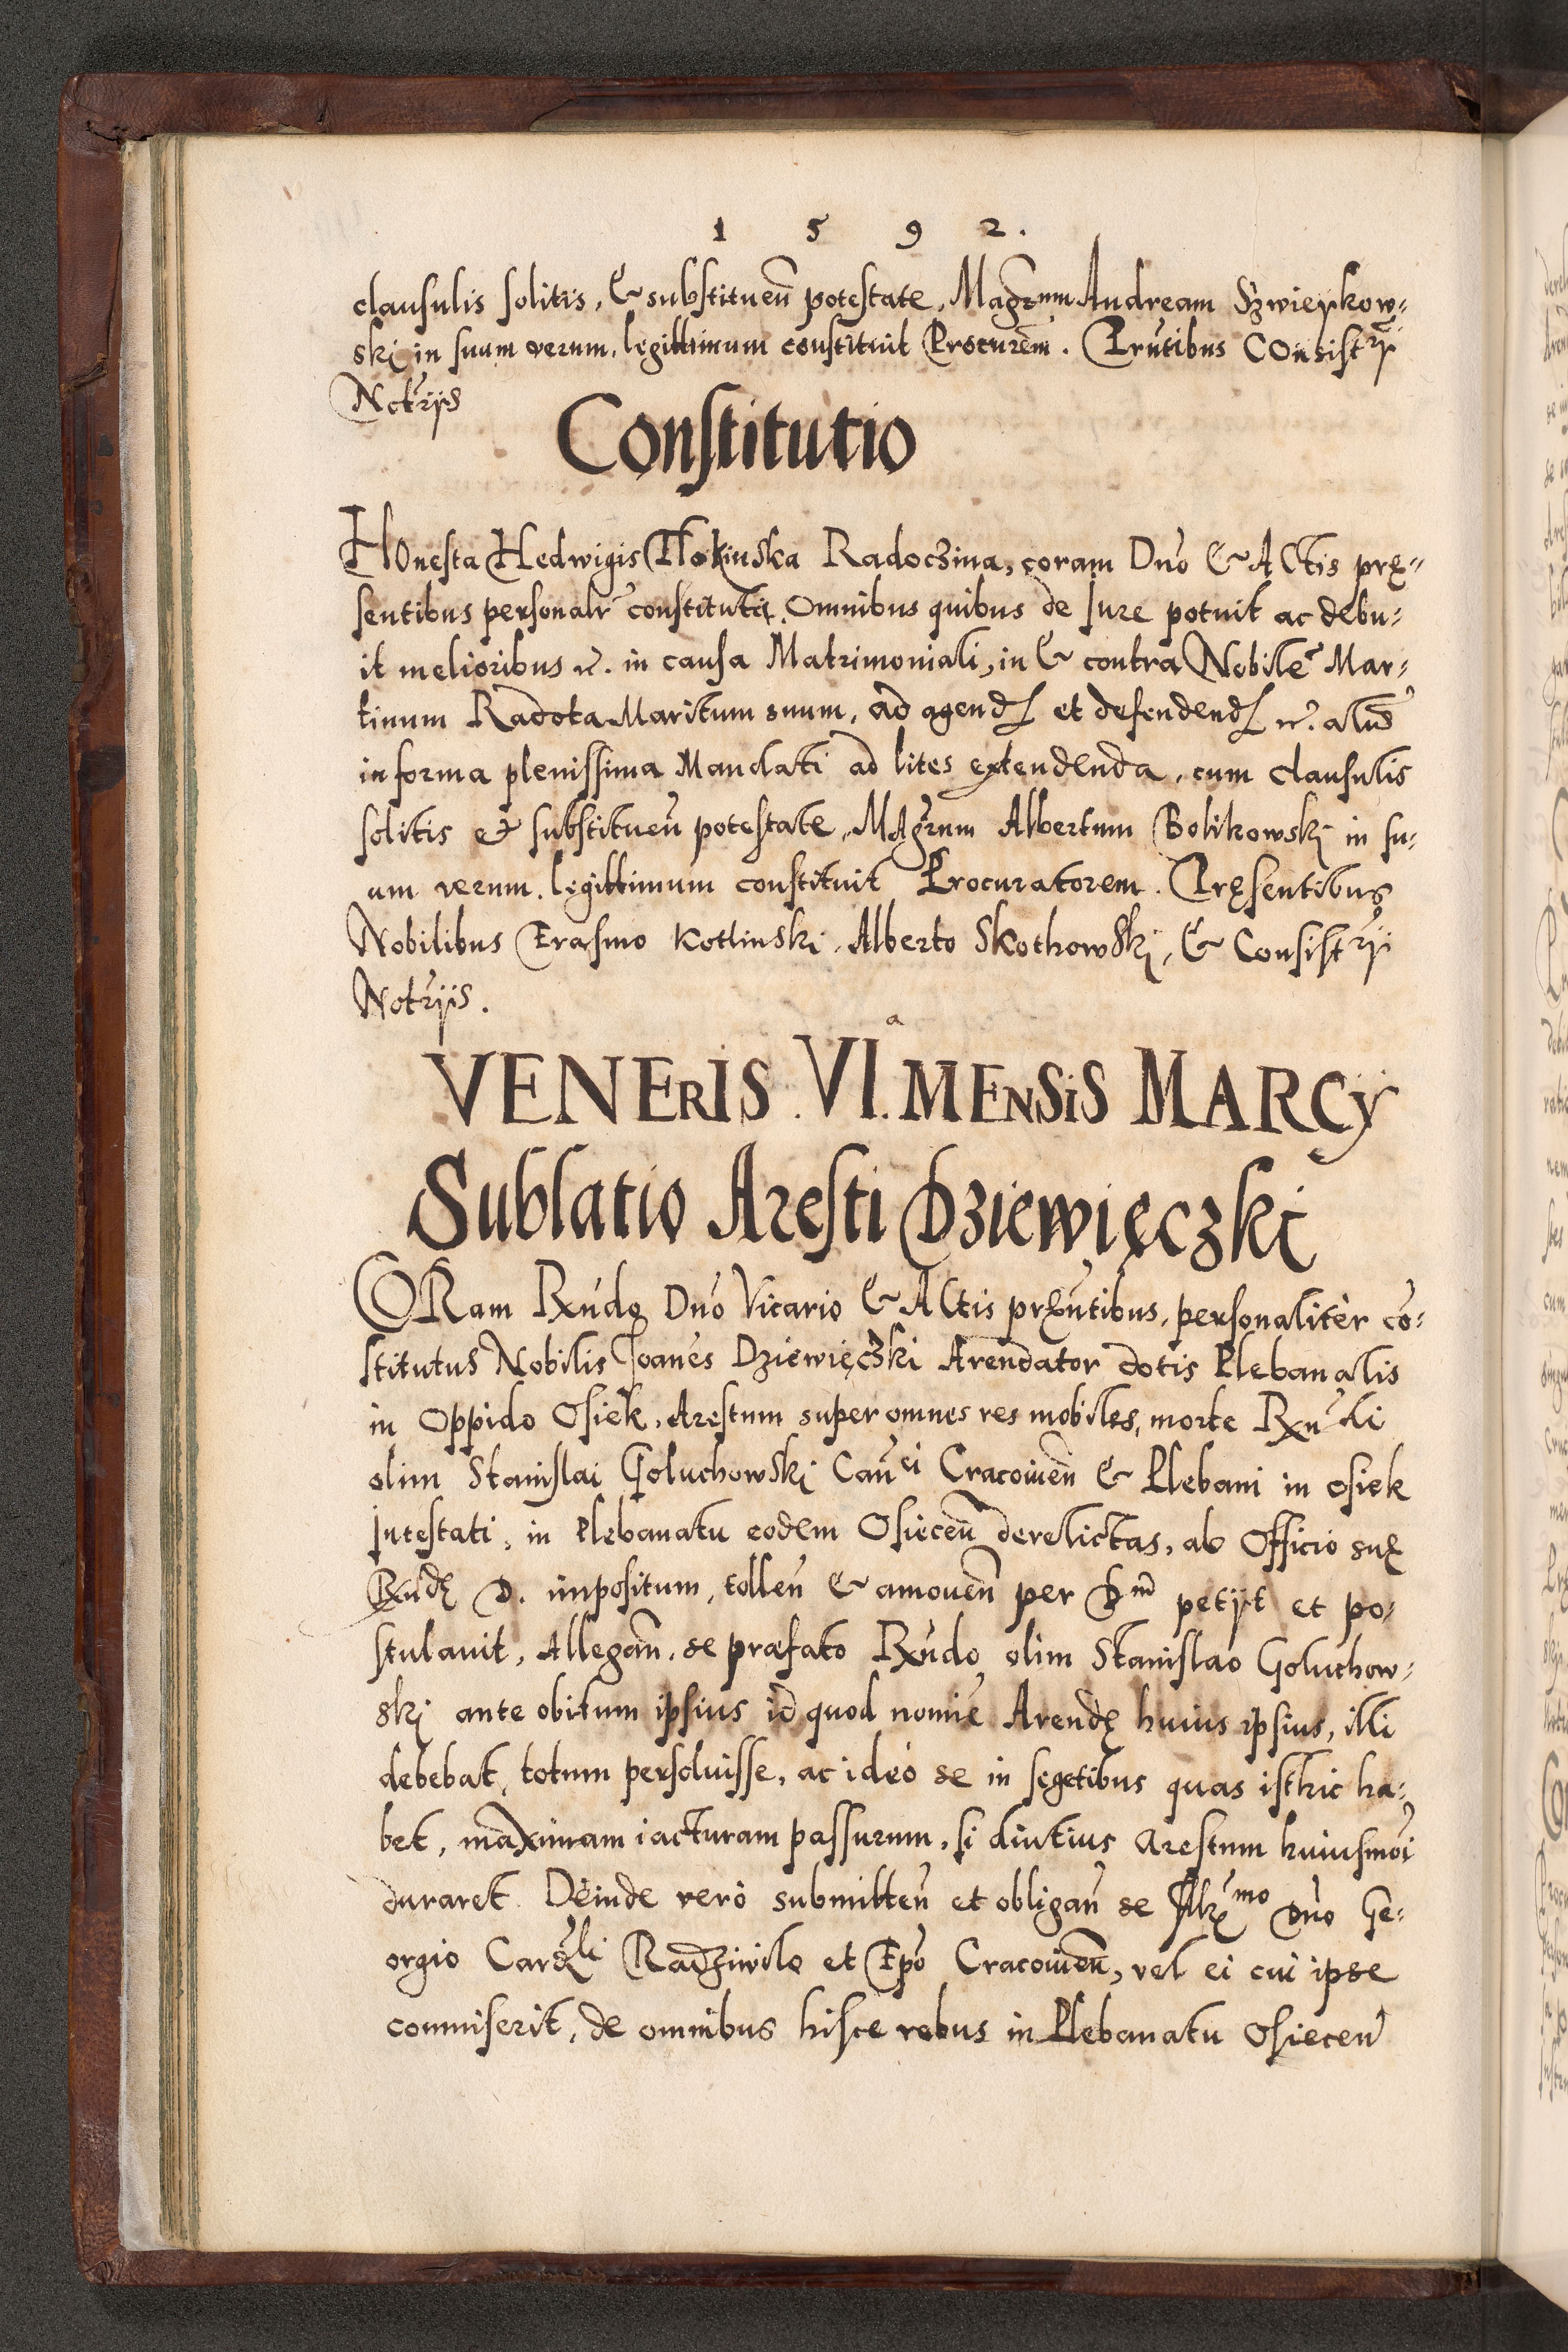 1 5 9 2.
clausulis solitis, & substituen̄ potestate, Magr̃um Andream Szwieykow-
ski in suum verum, legittimum constituit Procurem̃. Prñtibus COnsistrij
Notrijs
Constitutio
HOnesta Hedwigis Radoczina, coram Dño & ACtis prę-
sentibus personalr̃ constituta, Omnibus quibus de Iure potuit ac debu-
it melioribus etc. in causa Matrimoniali, in & contra Nobilē Mar-
tinum Radota Maritum suum, ad agend. et defendend. etc. alias
in forma plenissima Mandati ad lites extendenda, cum clausulis
solitis et substituen̄ potestate, MAgr̃um Albertum Bolikowski in su-
um verum, legittimum constituit Procuratorem. Pręsentibus
Nobilibus Erasmo Kotlinski, Alberto Skothowski, & Consistrij
Notrijs.
VENERIS VI.a MENSIS MARCY
Sublatio Aresti Dziewięczki
CORam Rṽdo Dño Vicario & ACtis pręñtibus, personalitèr cō-
stitutus Nobilis Joanēs Dziewięczki Arendator dotis Plebanalis
in Oppido Osiek, Arestum super omnes res mobiles, morte Rṽdi
olim Stanislai Goluchowski Canci Cracovien̄ & Plebani in Osiek
Intestati, in Plebanatu eodem Osiecen̄ derelictas, ab Officio suę
Rṽdę D. impositum, tollen̄ & amoven̄ per Dm̃ petijt et po-
stulavit, Allegan̄, se præfato Rṽdo olim Stanislao Goluchow-
ski ante obitum ipsius id quod nomiē Arendę huius ipsius, illi
debebat, totum persoluisse, ac ideò se in segetibus quas isthic ha-
bet, maximam iacturam passurum, si diutius arestum huiusmōi
duraret. Deinde verò submitten̄ et obligan̄ se Illr̃mo Dño Ge-
orgio Cardli Radziwilo et Epō Cracovien̄, vel ei cui ipse
commiserit, de omnibus hisce rebus in Plebanatu Osiecen̄